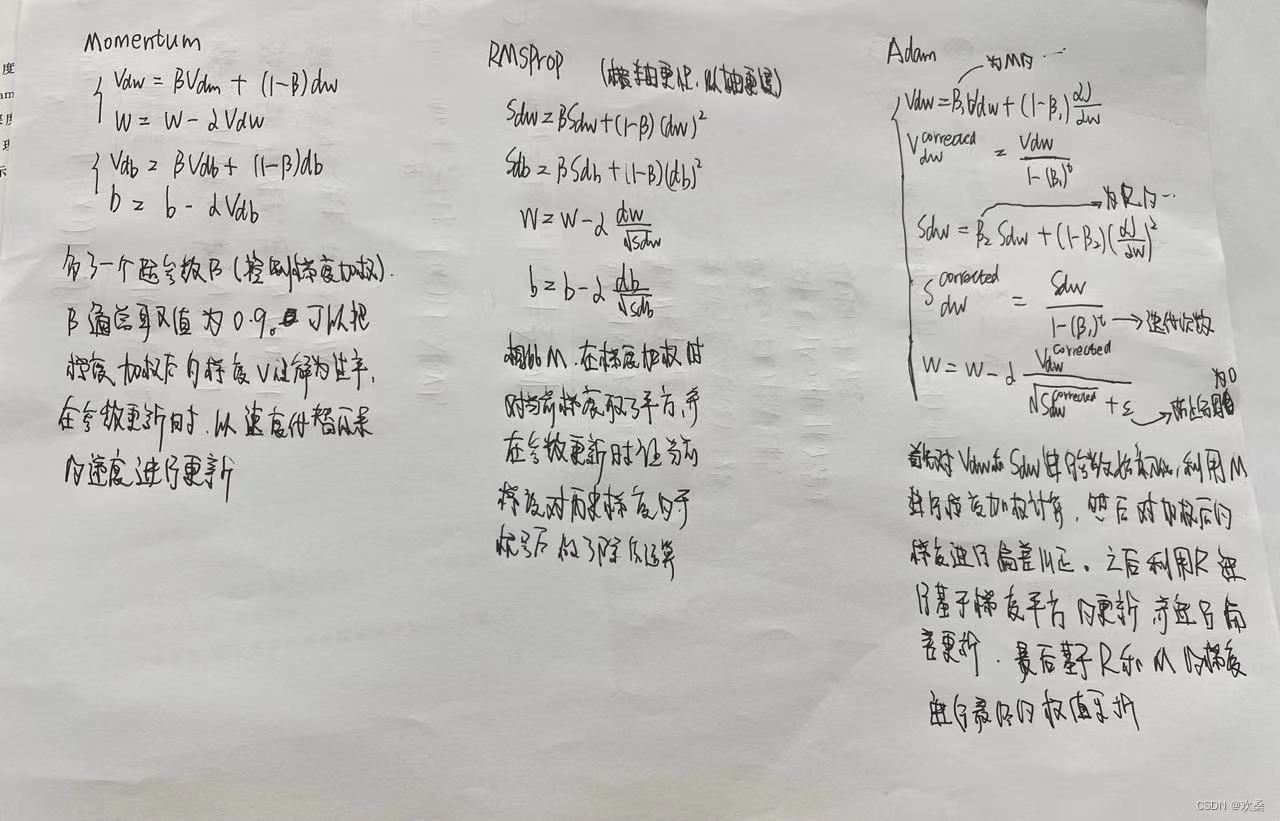 Momentum
Vdw = βVdm + (1-β)dw
W = W - αVdw
Vdb = βVdb + (1-β)db
b = b - αVdb
多了一个超参数β(控制梯度加权).
β通常取值为0.9。可以把
梯度加权后的梯度V理解为速率,
在参数更新时,以速度代替原来
的速度进行更新
RMSProp (横轴更快,纵轴更慢)
Sdw = βSdw + (1-β)(dw)²
Sdb = βSdb + (1-β)(db)²
W = W - α dw/√Sdw
b = b - α db/√Sdb
相比M,在梯度加权时
对当前梯度取了平方,并
在参数更新时让当前
梯度对历史梯度开于
根号后做了除法运算
Adam
为M的…
Vdw = β₁Vdw + (1-β₁) αJ/αw
V corrected dw = Vdw/1-(β₁)^t
为R的…
Sdw = β₂Sdw + (1-β₂)(αJ/αw)²
S corrected dw = Sdw/1-(β₁)^t → 迭代次数
W = W - α Vdw corrected/√Sdw corrected + ε → 防止 为0
首先对Vdw和Sdw进行参数初始化,利用M
进行梯度加权计算,然后对加权后的
梯度进行偏差纠正。之后利用R进
行基于梯度平方的更新并进行偏
差更新,最后基于R和M的梯度
进行最终的权值更新
度
am
度
理
示
CSDN @欢桑